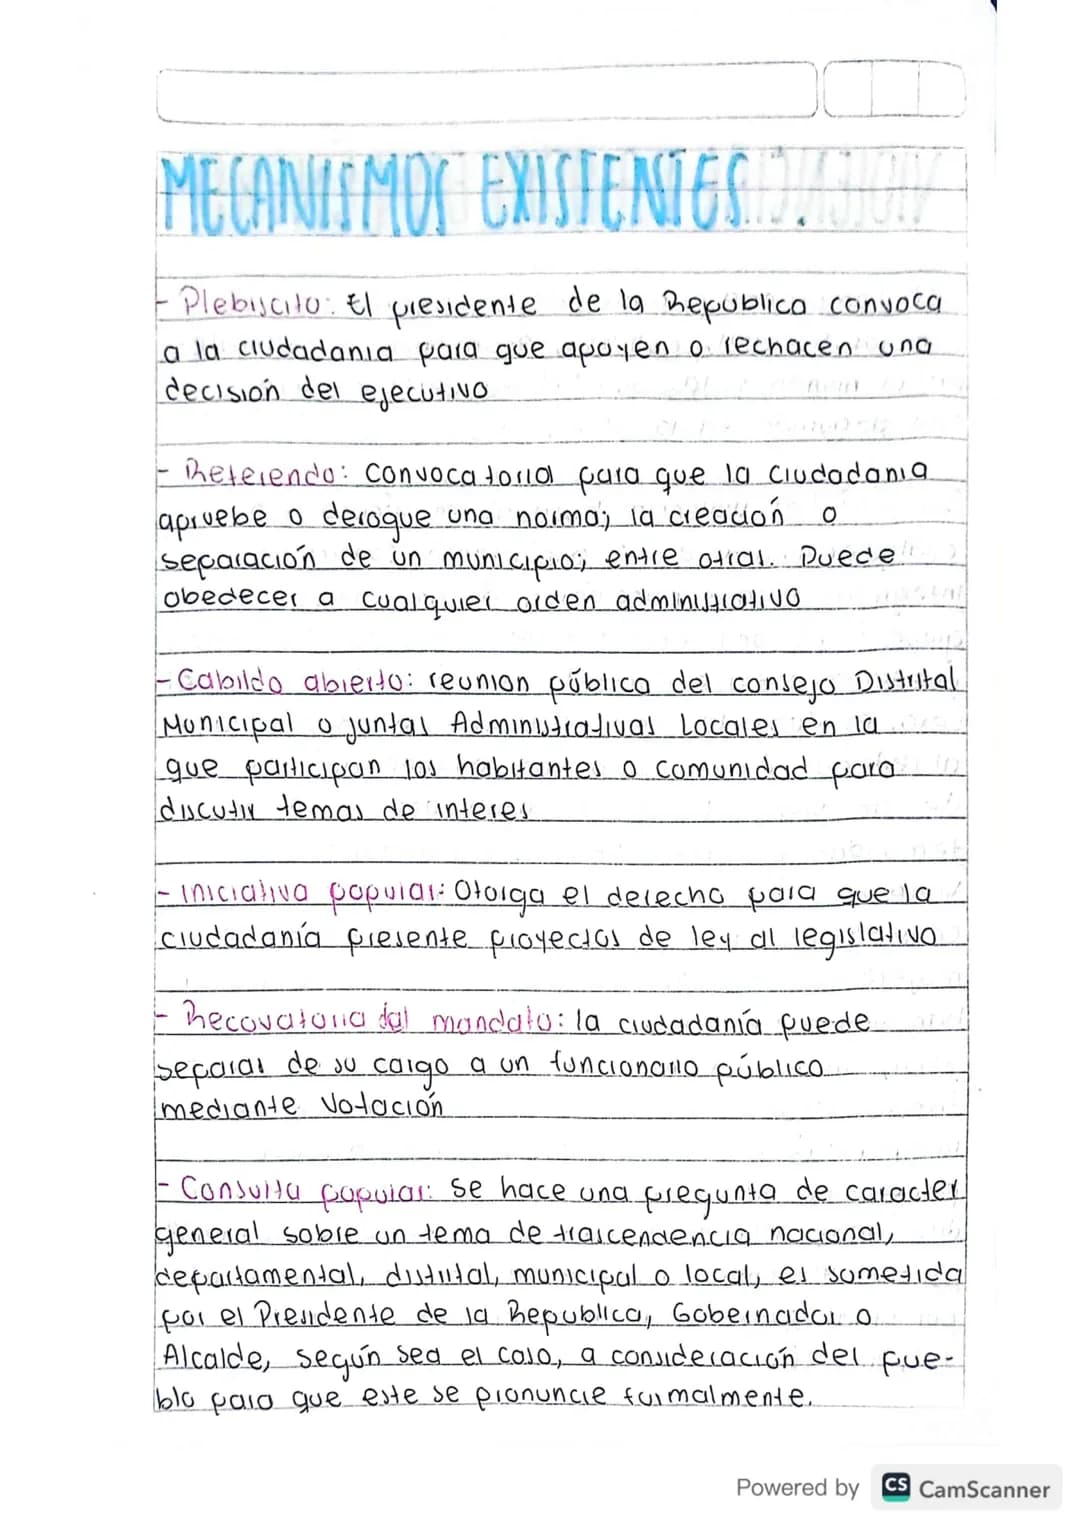 MECANISMOS EXISTENTES
- Plebiscito: El presidente de la República convoca
a la ciudadania para que apoyen o rechacen una
decisión del ejecutivo
- Referendo: Convocatorial para que la ciudadania
apruebe o derogue una norma; la creación o
separación de un municipio; entre otras. Puede
obedecer a cualquier orden administrativo
- Cabildo abierto: reunion pública del consejo Distrital
Municipal o juntas Administrativas Locales en la
que participan los habitantes o comunidad para
discutir temas de interes
- Iniciativa popular: Otorga el derecho para que la
ciudadanía presente proyectos de ley al legislativo
- Recovatoria del mandato: la ciudadanía puede
separar de su cargo a un funcionario público
mediante Votación
- Consulta popular: Se hace una pregunta de caracter
general sobre un tema de trascendencia nacional,
departamental, distrital, municipal o local, es sometida
por el Presidente de la Republica, Gobernador o
Alcalde, según sea el caso, a consideración del pue-
blo para que este se pronuncie formalmente.
Powered by CS CamScanner